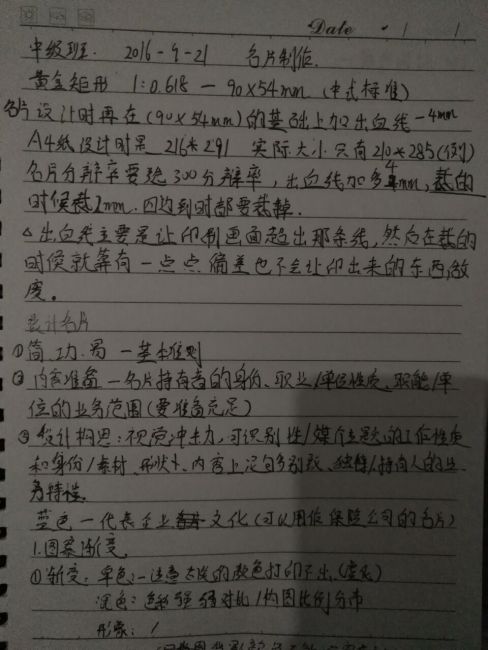 Date
中级班. 2016-9-21 名片制作.
黄金矩形 1:0.618 — 90×54mm (中式标准)
名片设计时再在(90×54mm)的基础上加出血线-4mm
A4纸设计时是 216*291 实际大小只有210*285(例)
名片分辨率要绝300分辨率, 出血线加多4mm, 裁的
时候裁2mm. 四边到时都要裁掉.
△出血线主要是让印刷画面超出那条线, 然后在裁的
时候就算有一点点偏差也不会让印出来的东西做
废。
设计名片
①简、功、易 —基本准则
②内容准备—名片持有者的身份、职业/单位性质、职能/单
位的业务范围(要准备充足)
③设计构思:视觉冲击力,可识别性/媒介主题的工作性质
和身份/素材、形状、内容上 独特/持有人的业
务特征.
蓝色—代表企业 文化(可以用作保险公司的名片)
1.图案渐变.
①渐变:单色:-注意太浅的颜色打印不出.
混色:色彩强弱对比/构图比例分布
形象: /